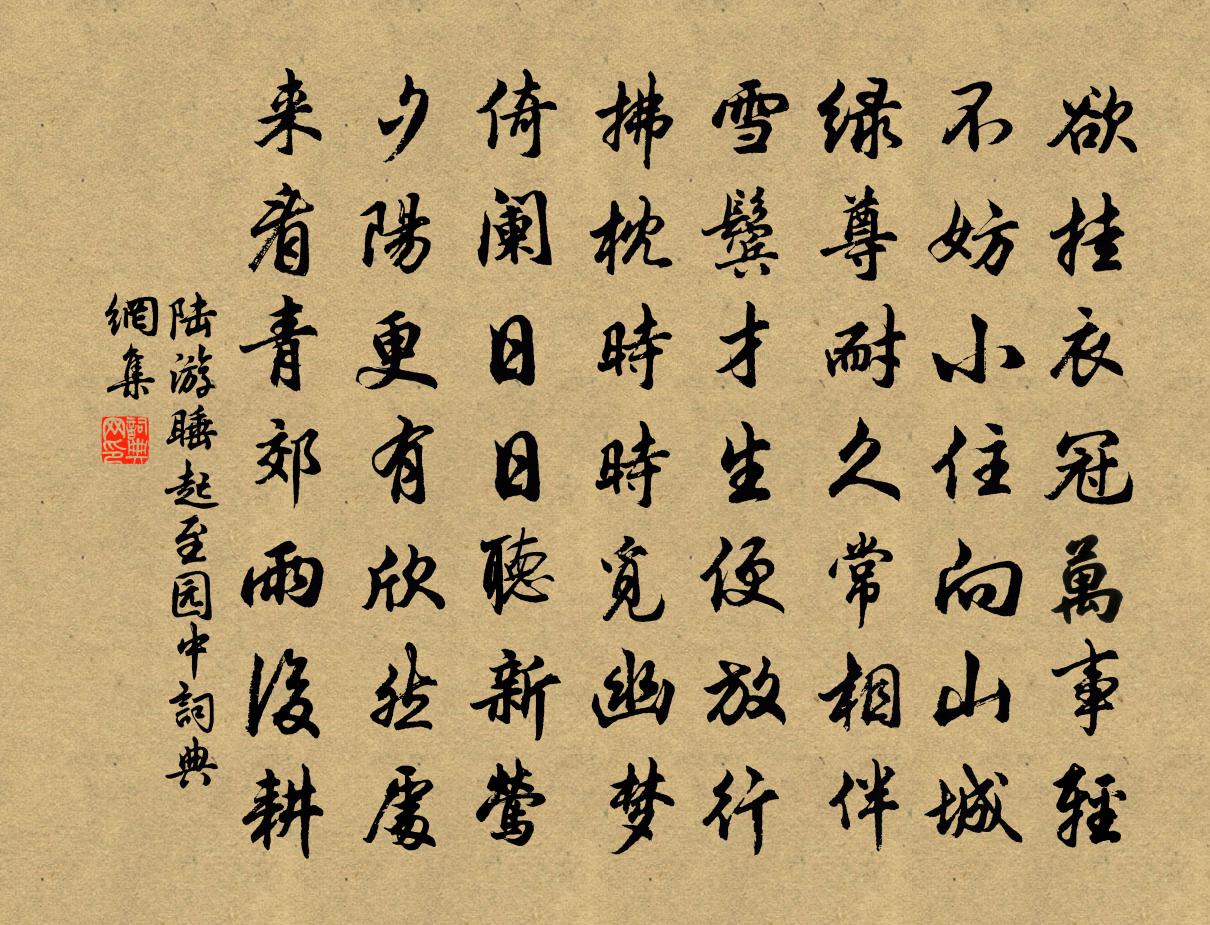 欲挂衣冠萬事輕
不妨小住向山城
緑尊耐久常相伴
雪鬢才生便放行
拂枕時時覓幽梦
倚阑日日聽新莺
夕陽更有欣然處
来看青郊雨後耕
陆游睡起至园中詞典
網集
詞典
网印